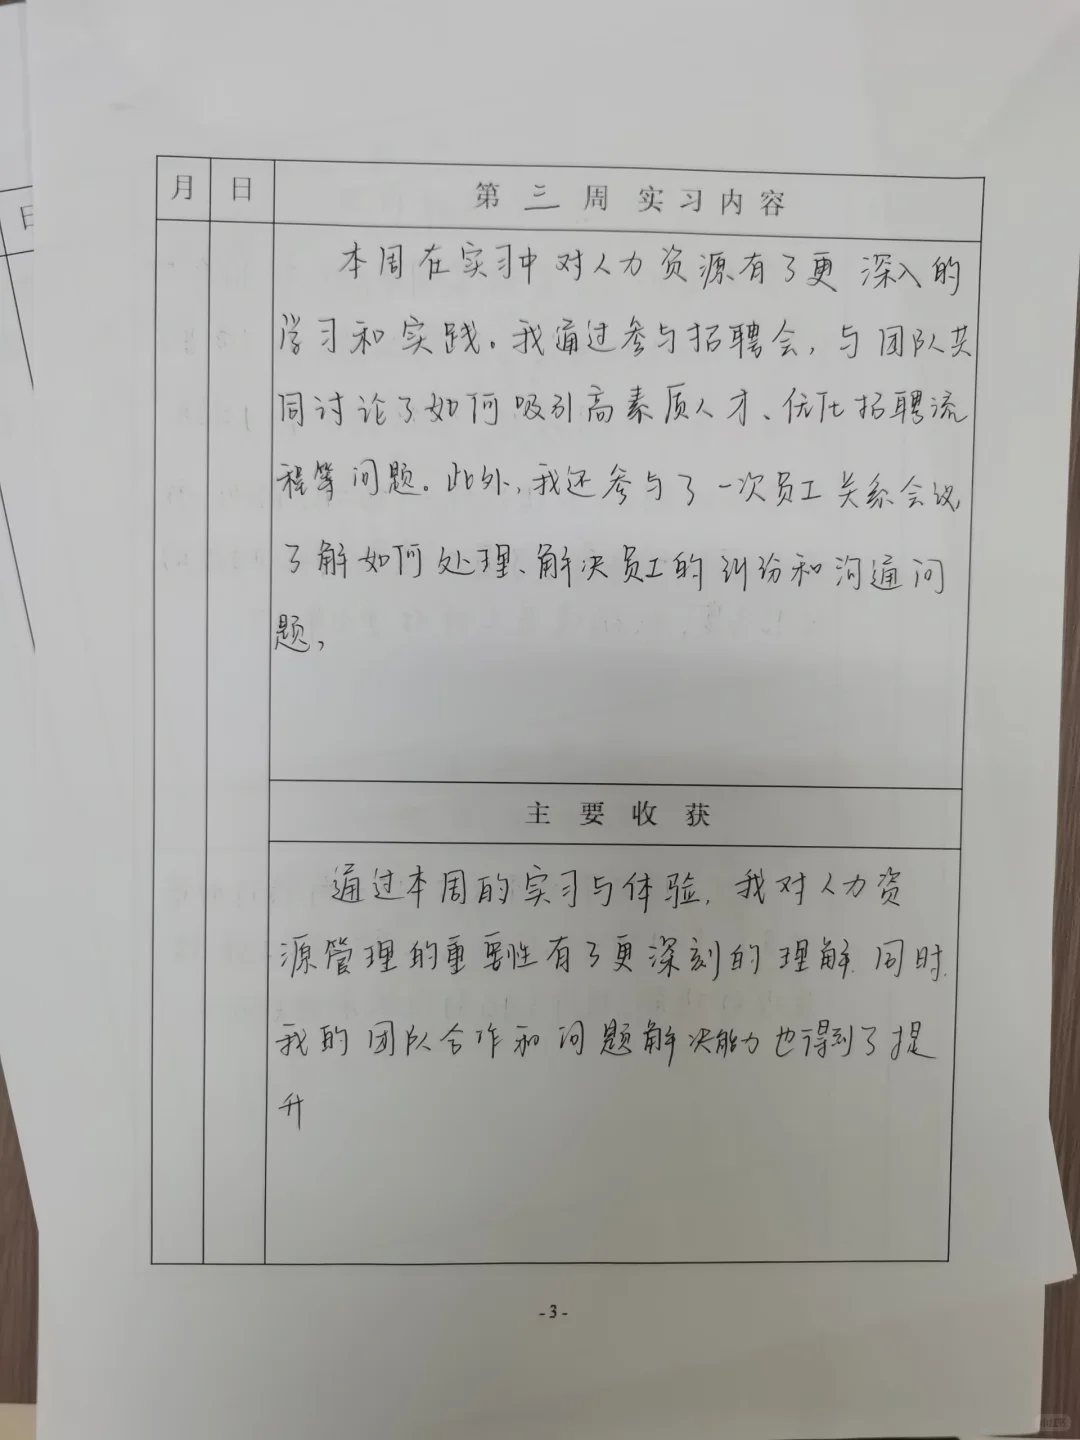 月 日 第 三 周 实 习 内 容
本周在实习中对人力资源有了更深入的
学习和实践。我通过参与招聘会,与团队共
同讨论了如何吸引高素质人才、优化招聘流
程等问题。此外,我还参与了一次员工关系会议,
了解如何处理、解决员工的纠纷和沟通问
题,
主 要 收 获
通过本周的实习与体验,我对人力资
源管理的重要性有了更深刻的理解.同时.
我的团队合作和问题解决能力也得到了提
升
-3-
日